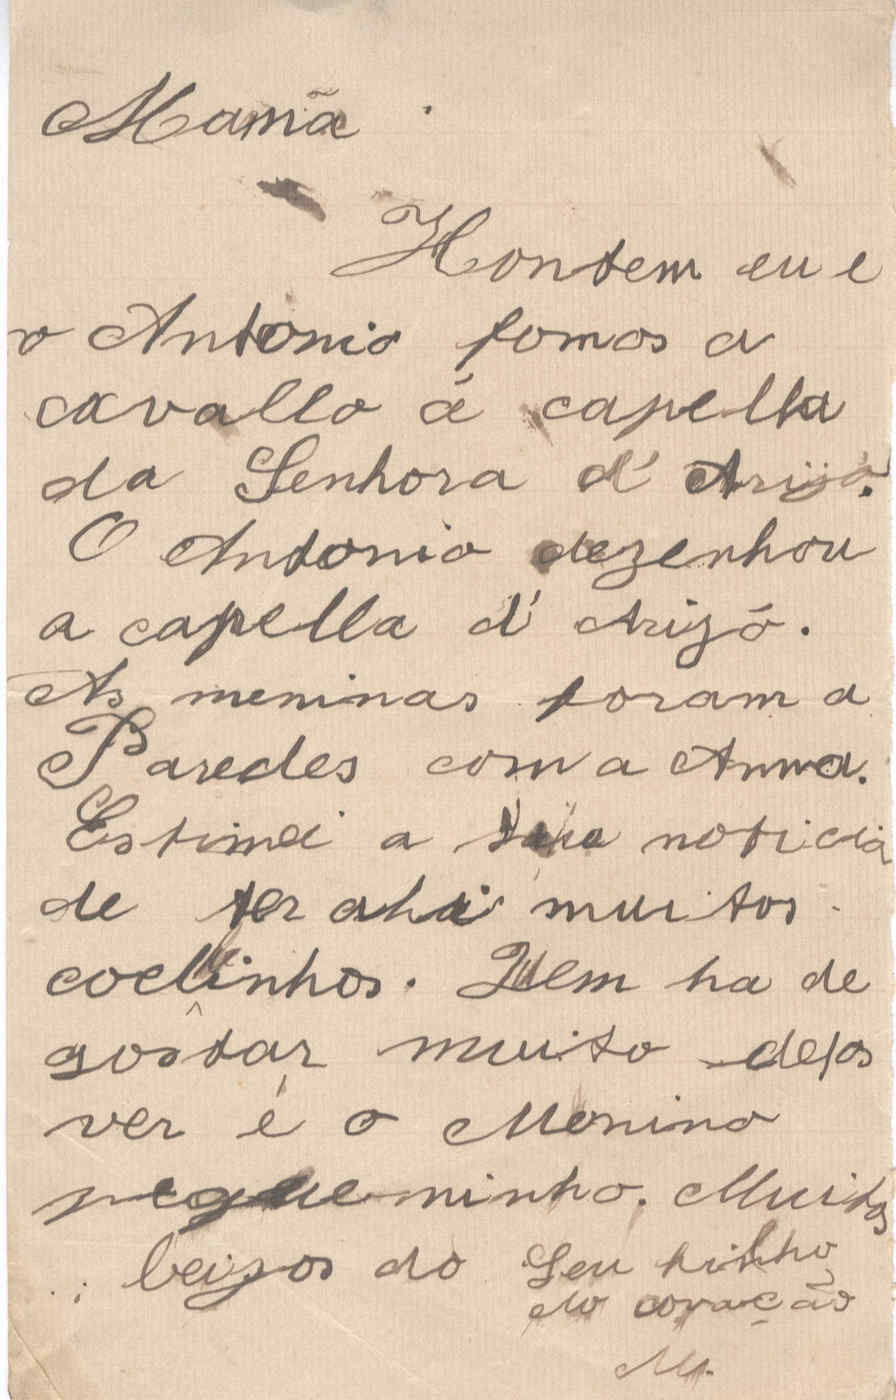 Mamã.
Hontem eu e
o Antonio fomos a
cavallo á capella
da Senhora d'Arijó.
O Antonio dezenhou
a capella d'Arizó.
As meninas foram a
Paredes com a Anna.
Estimei a sua noticia
de ter ahi muitos
coelinhos. Quem ha de
gostar muito de os
ver é o Menino
pequeninho. Muitos
beizos do Seu filhinho
do coração
M.